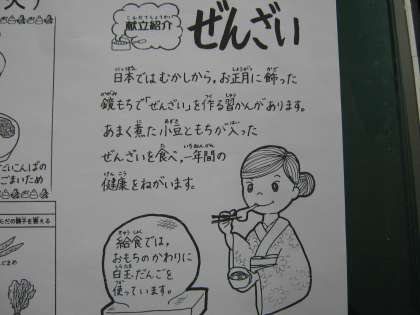 献立紹介
こんだてしょうかい
ぜんざい
日本ではむかしから、お正月に飾った
鏡もちで「ぜんざい」を作る習かんがあります。
あまく煮た小豆ともちが入った
ぜんざいを食べ、一年間の
健康をねがいます。
給食では、
おもちのかわりに
白玉だんごを
使っています。
だいこんばの
ごまいため
だの調子を整える